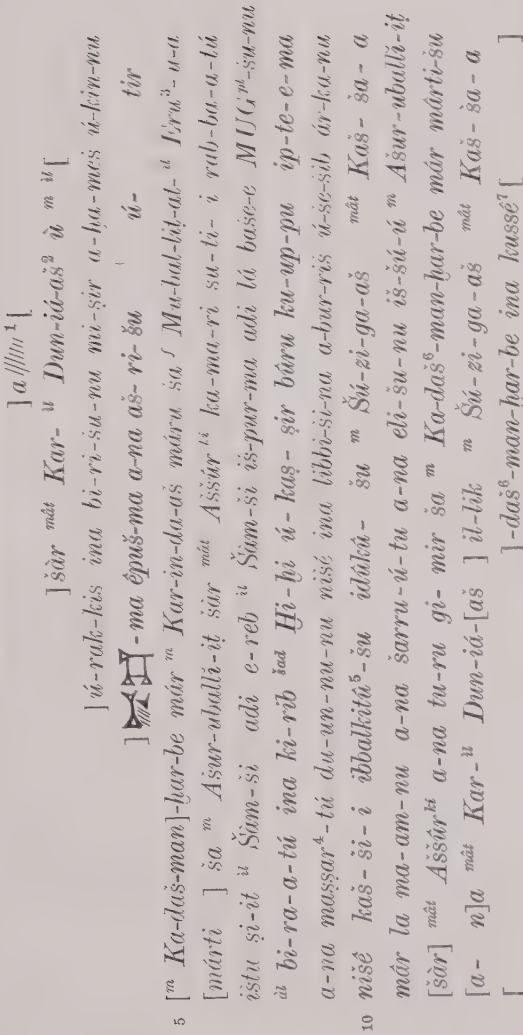 ] a ////// ¹ [
] šàr ᵐâᵗ Kar- ⁱˡ Dun-iá-aš² ù ᵐ ⁱˡ [
] ú-rak-kis ina bi-ri-šu-nu mi-ṣir a-ḫa-meš ú-kin-nu
] -ma êpuš-ma a-na aš- ri- šu ú- tir
5 [ᵐ Ka-daš-man]-ḫar-be már ᵐ Kar-in-da-aš máru ša ᶠ Mu-bal-liṭ-at- ⁱˡ Êru³- u-a
[márti ] ša ᵐ Ašur-uballi-iṭ šar ᵐáᵗ Aššúr ᵏⁱ ka-ma-ri su-ti- i rab-ba-a-tú
ištu ṣi-it ⁱˡ Šam-ši adi e-reb ⁱˡ Šam-ši iš-pur-ma adi lá baše-e MUGᵖˡ-šu-nu
ᵃˡ bi-ra-a-tú ina ki-rib šad Ḫi-ḫi ú-kaṣ-ṣir bûru ku-up-pu ip-te-e-ma
a-na maṣṣar⁴-tú du-un-nu-nu nišé ina libbi-ši-na a-bur-riš ú-še-šib ár-ka-nu
10 nišê kaš-ši-i ibbalkitû⁵-šu idûkû- šu ᵐ Šú-zi-ga-aš ᵐâᵗ Kaš- ša- a
mâr la ma-am-nu a-na šarru-ú-tu a-na eli-šu-nu iš-šú-ú ᵐ Ašur-uballi-iṭ
[šàr] ᵐâᵗ Aššûrᵏⁱ a-na tu-ru gi- mir ša ᵐ Ka-daš⁶-man-ḫar-be már márti-šu
[a- n]a ᵐâᵗ Kar- ⁱˡ Dun-iá-[aš ] il-lik ᵐ Šú-zi-ga-aš ᵐâᵗ Kaš- ša- a
[ ]-daš⁶-man-ḫar-be ina kussé⁷ [ ]